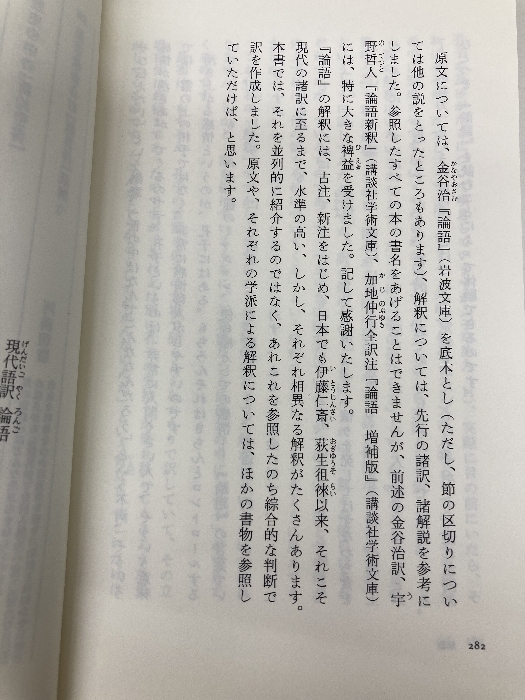 原文については、金谷治『論語』（岩波文庫）を底本とし（ただし、節の区切りについ
ては他の説をとったところもあります）、解釈については、先行の諸訳、諸解説を参考に
しました。参照したすべての本の書名をあげることはできませんが、前述の金谷治訳、宇
野哲人『論語新釈』（講談社学術文庫）、加地伸行全訳注『論語　増補版』（講談社学術文庫）
には、特に大きな裨益を受けました。記して感謝いたします。
『論語』の解釈には、古注、新注をはじめ、日本でも伊藤仁斎、荻生徂徠以来、それこそ
現代の諸訳に至るまで、水準の高い、しかし、それぞれ相異なる解釈がたくさんあります。
本書では、それを並列的に紹介するのではなく、あれこれを参照したのち綜合的な判断で
訳を作成しました。原文や、それぞれの学派による解釈については、ほかの書物を参照し
ていただけば、と思います。
282
現代語訳 論語